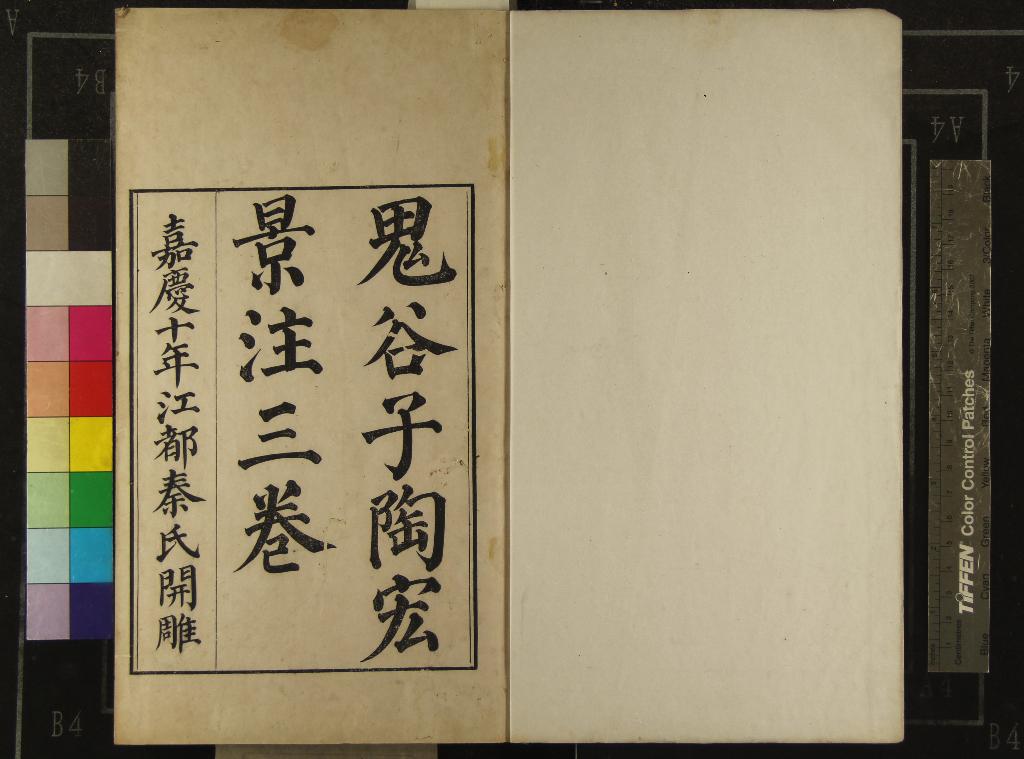 鬼谷子陶宏
景注三卷
嘉慶十年江都秦氏開雕
TIFFEN Color Control Patches
Blue Cyan Green Yellow Red Magenta White 3/Color Black
Centimetres
Inches
A
B4
A4
4
B4
A4
B4